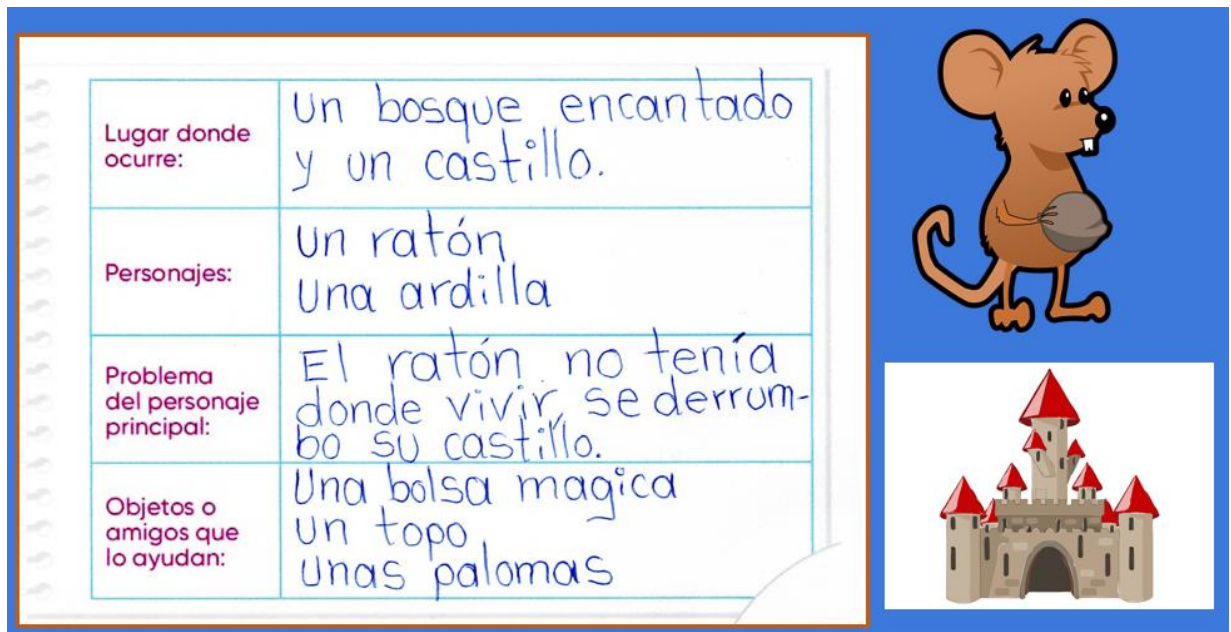 Lugar donde
ocurre:
Un bosque encantado
y un castillo.
Personajes:
Un ratón
Una ardilla
Problema
del personaje
principal:
El ratón no tenía
donde vivir, se derrum-
bo su castillo.
Objetos o
amigos que
lo ayudan:
Una bolsa magica
un topo
unas palomas